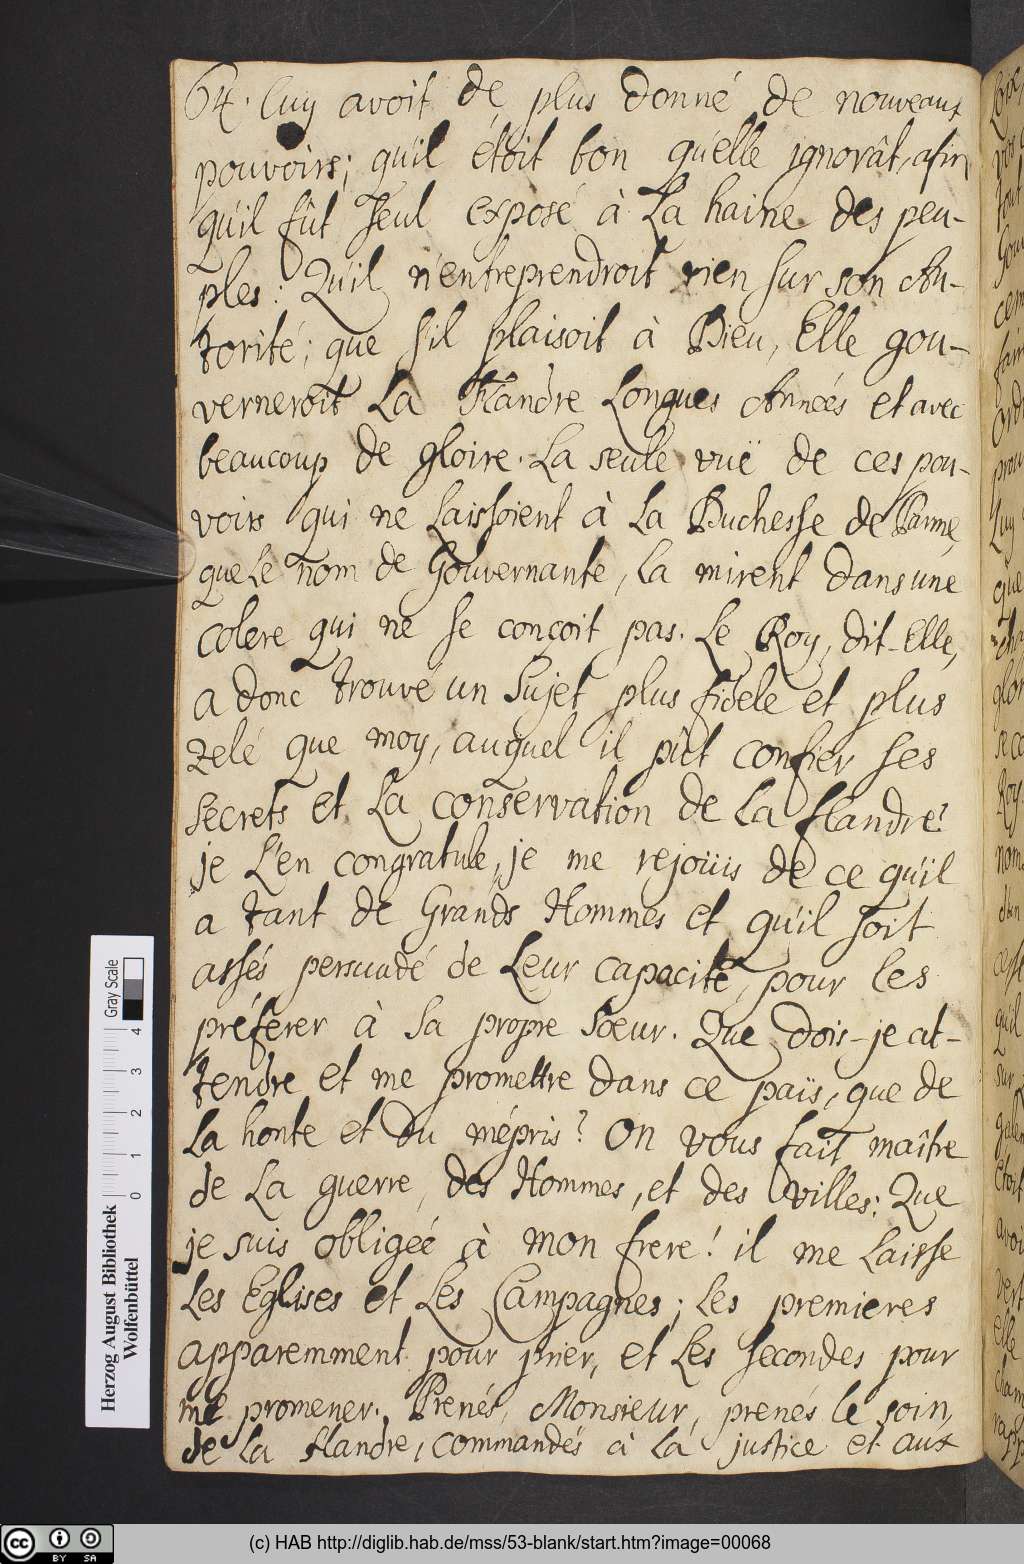 64. luy avoit de plus donné de nouveaux
pouvoirs; qu'il étoit bon qu'elle ignorât, afin
qu'il fût seul exposé à La haine des peu-
ples: Qu'il n'entreprendroit rien sur son Au-
torité; que s'il plaisoit à Dieu, Elle gou-
verneroit La Flandre Longues Années et avec
beaucoup de gloire. La seule vuë de ces pou-
voirs qui ne Laissoient à La Duchesse de Parme,
que Le nom de Gouvernante, la mirent dans une
colere qui ne se conçoit pas. Le Roy, dit-Elle,
a donc trouvé un Sujet plus fidele et plus
zelé que moy, auquel il pût confier ses
secrets et La conservation de La flandre!
je L'en congratule, je me rejoüis de ce qu'il
a tant de Grands Hommes et qu'il soit
assés persuadé de Leur capacité, pour les
préferer à sa propre Soeur. Que dois-je at-
tendre et me promettre dans ce païs, que de
La honte et du mépris? On vous fait maître
de La guerre, des Hommes, et des villes: Que
je suis obligée à mon frere! il me Laisse
Les Eglises et Les Campagnes; Les premieres
apparemment pour prier, et Les secondes pour
me promener. Prenés, Monsieur, prenes le soin
de La flandre, commandés à La justice et aux
Gray Scale
4
3
2
1
0
Herzog August Bibliothek
Wolfenbüttel
cc BY SA
(c) HAB http://diglib.hab.de/mss/53-blank/start.htm?image=00068